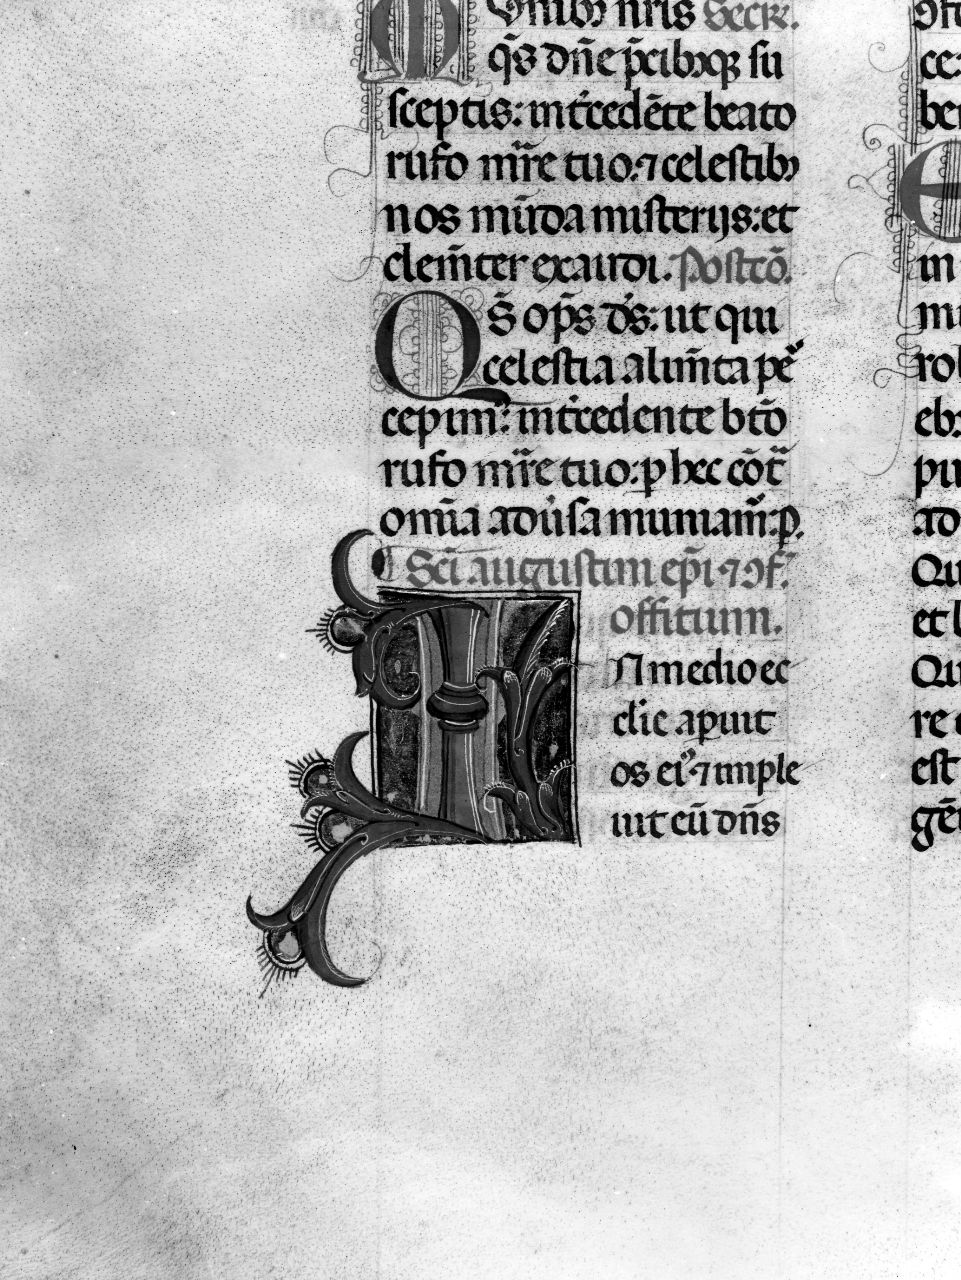 nr̃is Secr̃.
M
q̃s dñe p̃cibꝫqꝫ su
sceptis: int̃cedẽte beato
rufo m̃r̃e tuo: ⁊ celestibꝫ
nos mũda misterijs: et
clem̃ter exaudi. Postcõ.
Q̃s op̃s d̃s: ut qui
celestia alim̃ta pe
cepim᷒: int̃cedente btõ
rufo m̃r̃e tuo: p hec cõt̃
om̃ia adũsa muniam᷒: p.
Sc̃i augustini ep̃i ⁊ ↄf̃.
offitium.
IN medio ec
clie apuit
os ei᷒ ⁊ imple
uit eũ dñs
ce
ber
E
in
mi
rob
ebꝫ
pu
ad
Qu
et b
Qu
re c
est
gẽ